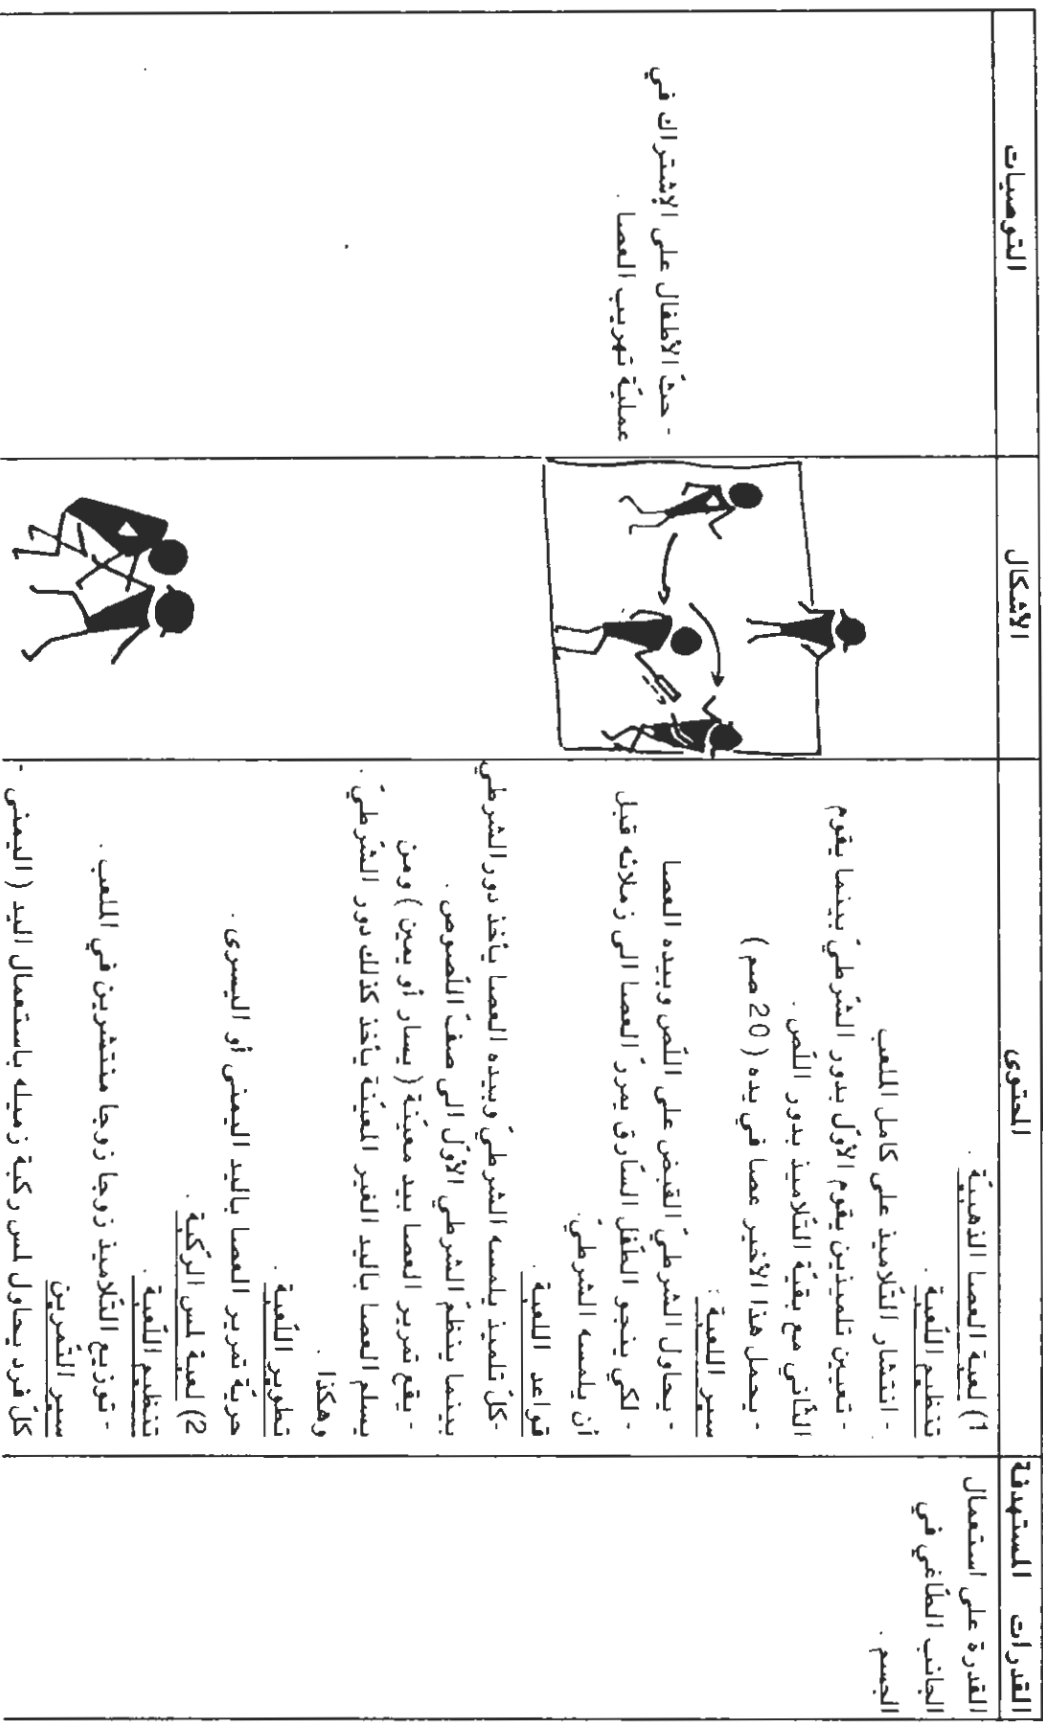 القدرات المستهدفة
المحتوى
الأشكال
التوصيات
القدرة على استعمال
الجانب الطّاغي في
الجسم .
1) لعبة العصا الذهبيّة .
تنظيم اللّعبة .
- انتشار التّلاميذ على كامل الملعب
- تعيين تلميذين يقوم الأوّل بدور الشّرطيّ بينما يقوم
الثّاني مع بقيّة التّلاميذ بدور اللّص .
- يحمل هذا الأخير عصا في يده ( 20 صم )
سير اللعبة :
- يحاول الشرطيّ القبض على اللّص وبيده العصا
- لكي ينجو الطّفل السّارق يمرّر العصا الى زملائه قبل
أن يلمسه الشرطيّ.
قواعد اللعبة .
-كلّ تلميذ يلمسه الشرطيّ وبيده العصا يأخذ دور الشرطيّ
بينما ينظمّ الشرطي الأوّل الى صفّ اللّصوص .
- يقع تمرير العصا بيد معيّنة ( يسار أو يمين ) ومن
يسلم العصا باليد الغير المعيّنة يأخذ كذلك دور الشّرطيّ .
وهكذا .
تطوير اللّعبة .
حريّة تمرير العصا باليد اليمنى أو اليسرى .
2) لعبة لمس الرّكبة .
تنظيم اللّعبة .
- توزيع التّلاميذ زوجا زوجا منتشرين في الملعب .
سير التّمرين
كلّ فرد يحاول لمس ركبة زميله باستعمال اليد ( اليمنى -
- حثّ الأطفال على الإشتراك في
عمليّة تهريب العصا .